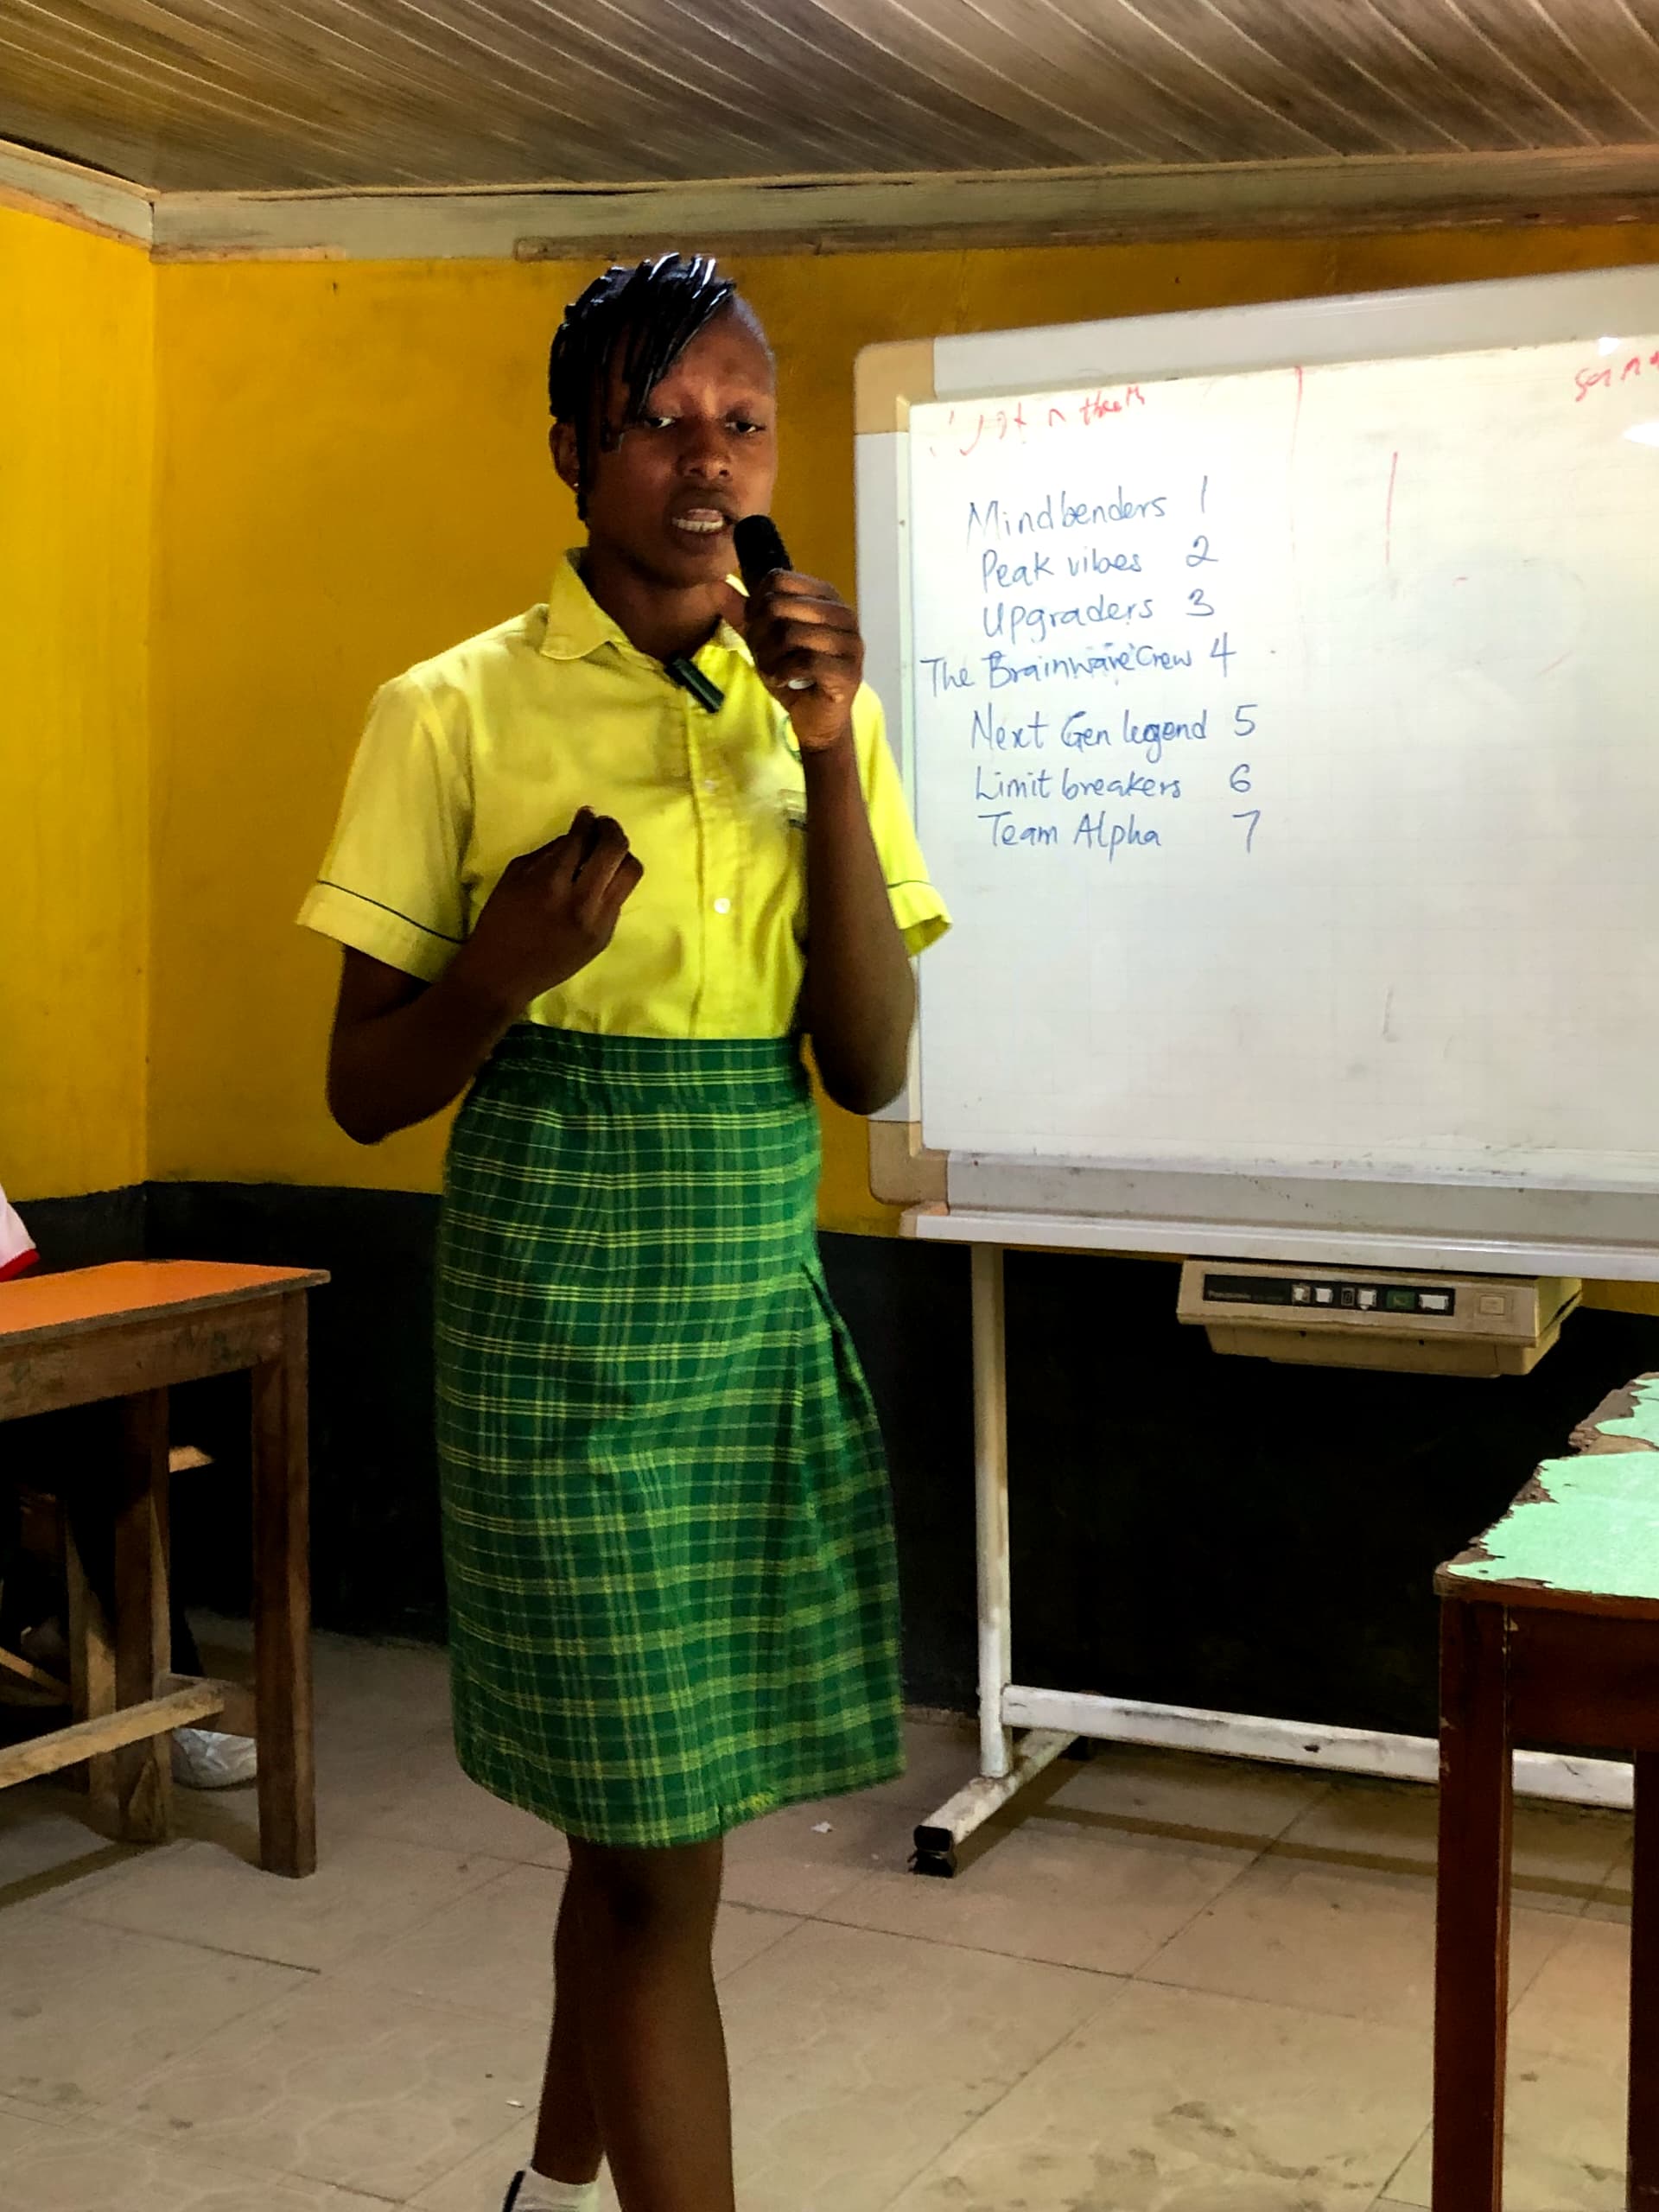 Mindbenders 1
Peak vibes 2
Upgraders 3
The Brainwave Crew 4
Next Gen legend 5
Limit breakers 6
Team Alpha 7
Panasonic